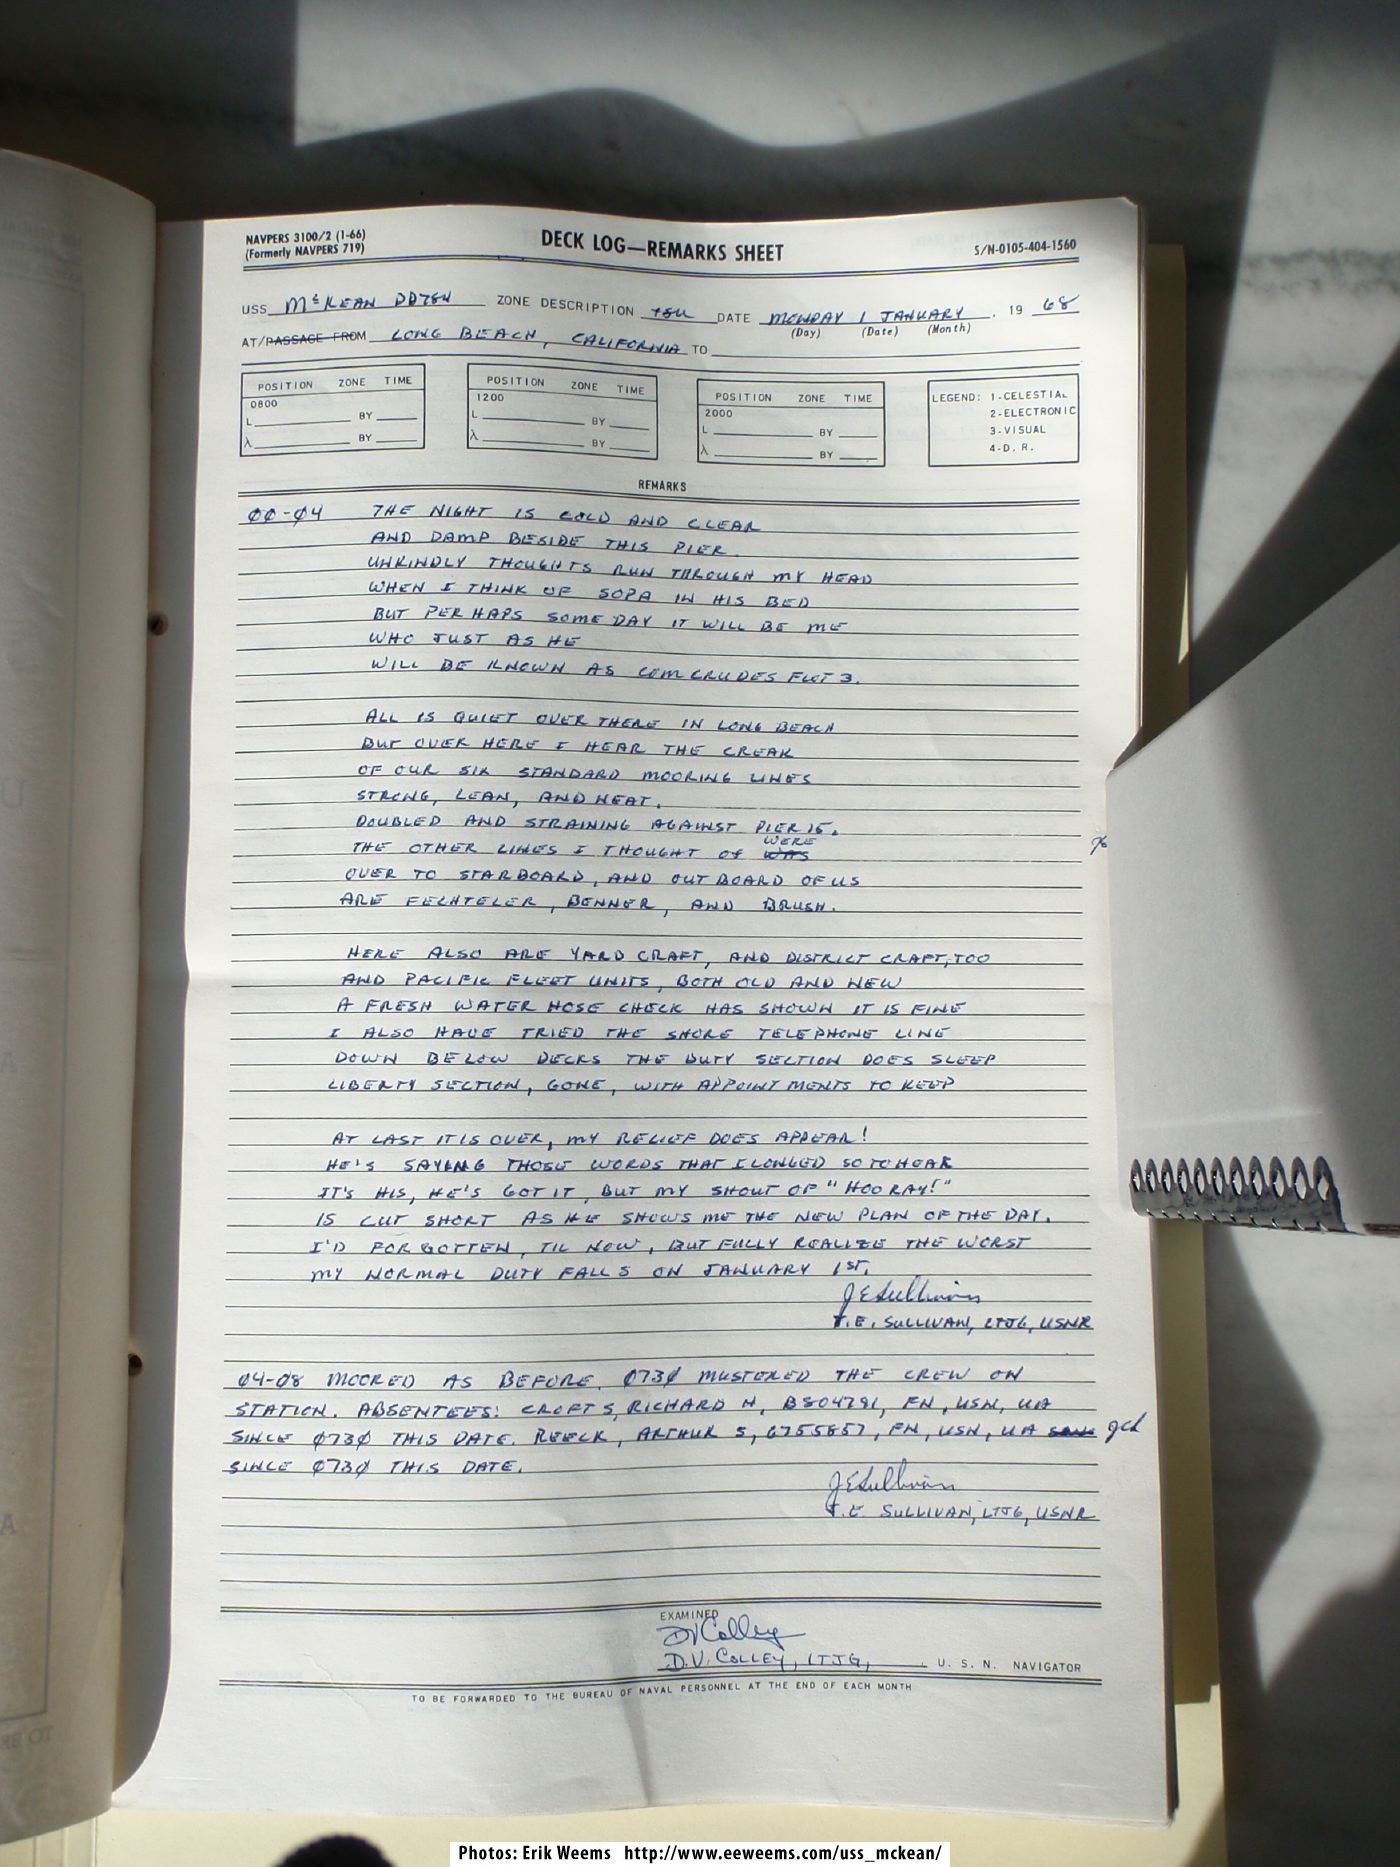 NAVPERS 3100/2 (1-66)
(Formerly NAVPERS 719)
DECK LOG—REMARKS SHEET
S/N-0105-404-1560
USS McKEAN DD784 ZONE DESCRIPTION +8U DATE MONDAY 1 JANUARY, 19 68
(Day) (Date) (Month)
AT/PASSAGE FROM LONG BEACH, CALIFORNIA TO
POSITION ZONE TIME
0800
L BY
λ BY
POSITION ZONE TIME
1200
L BY
λ BY
POSITION ZONE TIME
2000
L BY
λ BY
LEGEND: 1-CELESTIAL
2-ELECTRONIC
3-VISUAL
4-D. R.
REMARKS
00-04 THE NIGHT IS COLD AND CLEAR
AND DAMP BESIDE THIS PIER.
UNKINDLY THOUGHTS RUN THROUGH MY HEAD
WHEN I THINK OF SOPA IN HIS BED
BUT PERHAPS SOMEDAY IT WILL BE ME
WHO JUST AS HE
WILL BE KNOWN AS COMCRUDESFLOT 3.
ALL IS QUIET OVER THERE IN LONG BEACH
BUT OVER HERE I HEAR THE CREAK
OF OUR SIX STANDARD MOORING LINES
STRONG, LEAN, AND NEAT.
DOUBLED AND STRAINING AGAINST PIER 15.
WERE
THE OTHER LINES I THOUGHT OF WAS
OVER TO STARBOARD, AND OUTBOARD OF US
ARE FECHTELER, BENNER, AND BRUSH.
HERE ALSO ARE YARD CRAFT, AND DISTRICT CRAFT, TOO
AND PACIFIC FLEET UNITS, BOTH OLD AND NEW
A FRESH WATER HOSE CHECK HAS SHOWN IT IS FINE
I ALSO HAVE TRIED THE SHORE TELEPHONE LINE
DOWN BELOW DECKS THE DUTY SECTION DOES SLEEP
LIBERTY SECTION, GONE, WITH APPOINTMENTS TO KEEP
AT LAST IT IS OVER, MY RELIEF DOES APPEAR!
HE'S SAYING THOSE WORDS THAT I LONGED SO TO HEAR
IT'S HIS, HE'S GOT IT, BUT MY SHOUT OF "HOORAY!"
IS CUT SHORT AS HE SHOWS ME THE NEW PLAN OF THE DAY.
I'D FORGOTTEN, TIL NOW, BUT FULLY REALIZE THE WORST
MY NORMAL DUTY FALLS ON JANUARY 1ST.
J E Sullivan
J. E. SULLIVAN, LTJG, USNR
04-08 MOORED AS BEFORE. 0730 MUSTERED THE CREW ON
STATION. ABSENTEES: CROFTS, RICHARD H, B504791, FN, USN, UA
SINCE 0730 THIS DATE. REECK, ARTHUR S, 6755857, FN, USN, UA
SINCE 0730 THIS DATE.
J E Sullivan
J. E. SULLIVAN, LTJG, USNR
EXAMINED
DV Colley
D.V. COLLEY, LTJG, U. S. N. NAVIGATOR
TO BE FORWARDED TO THE BUREAU OF NAVAL PERSONNEL AT THE END OF EACH MONTH
Photos: Erik Weems http://www.eeweems.com/uss_mckean/